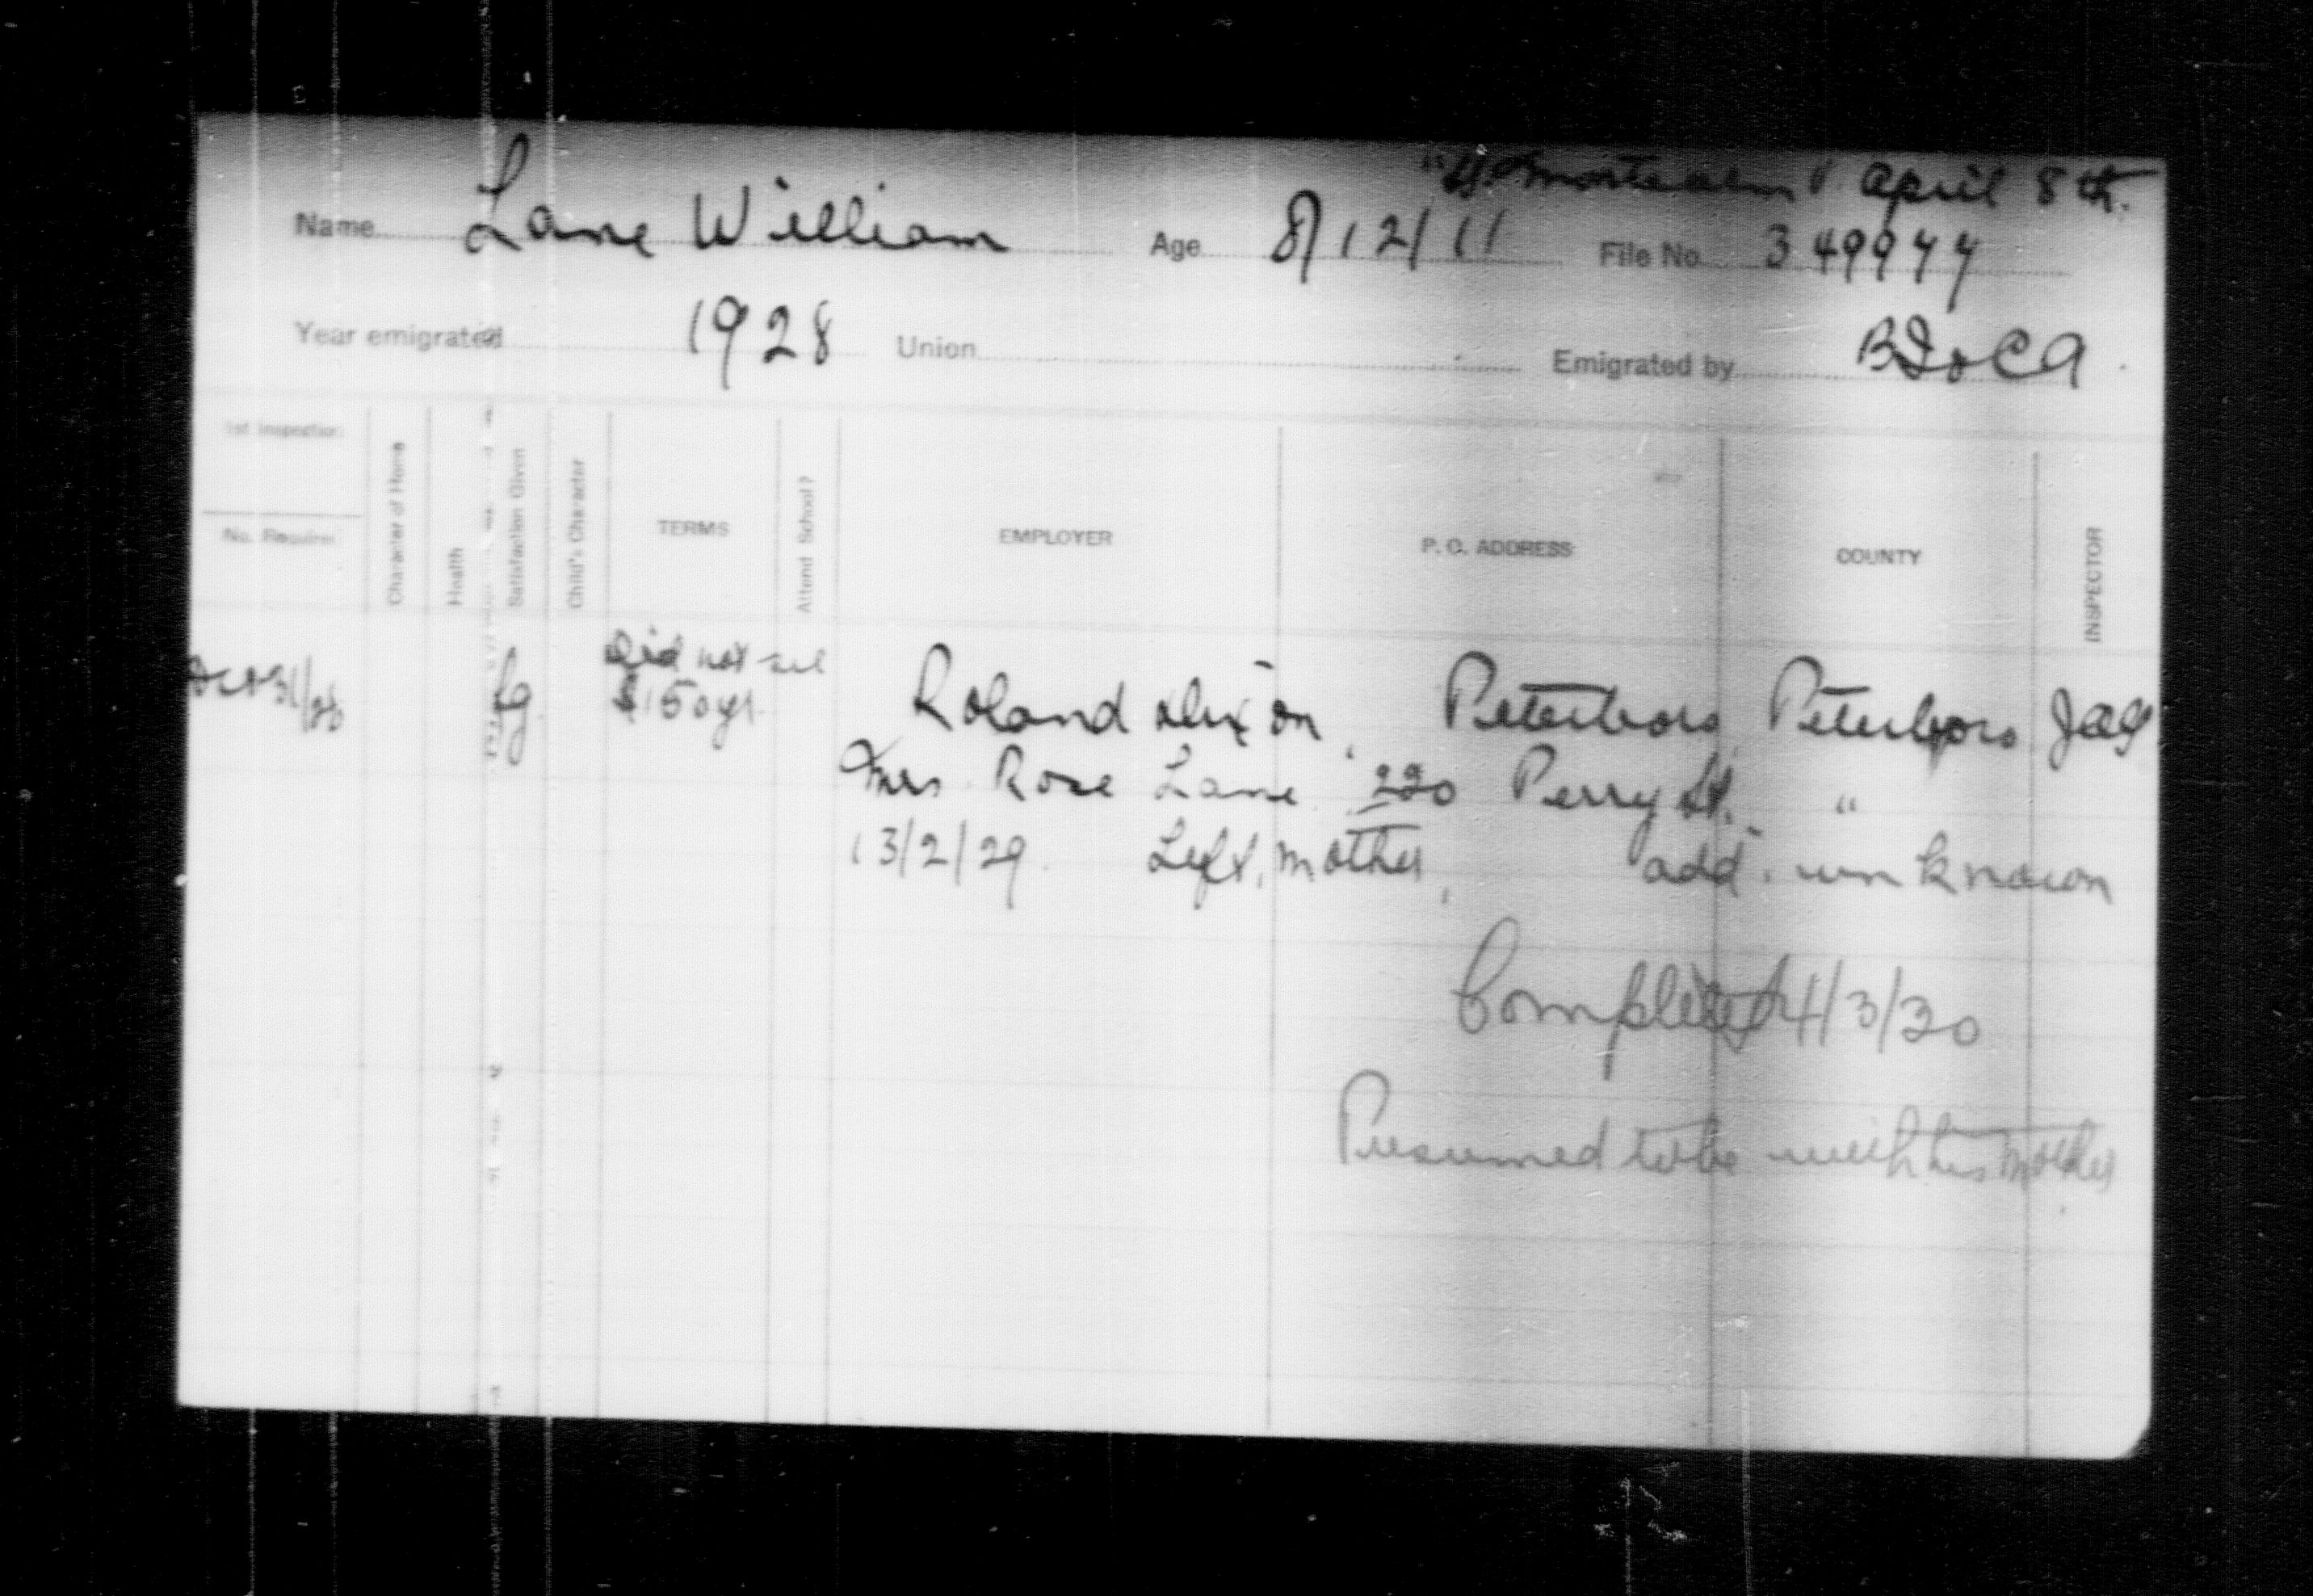 April 8th.
Name Lane William Age 8/12/11 File No. 349944
Year emigrated 1928 Union Emigrated by BIOCA
1st Inspection
No. Require
Character of Home
Health
Satisfaction Given
Child's Character
TERMS
Attend School?
EMPLOYER
P. O. ADDRESS
COUNTY
INSPECTOR
Did not
31/28 fg $150 yr Roland Dixon, Peterboro Peterboro
Mrs Rose Lane 220 Perry St. "
13/2/29. Left, mother, add. unknown
Completed 4/3/30
Presumed to be with his mother